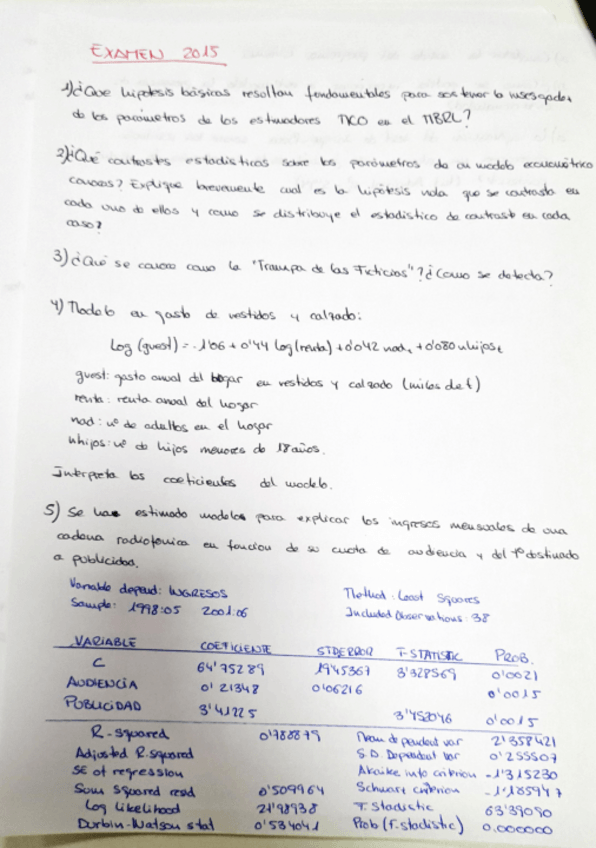 EXAMEN 2015
1) ¿Que hipotesis básicas resultan fundamentales para sostener la insesgadez
de los parámetros de los estimadores MCO en el MBRL?
2) ¿Qué contrastes estadísticos sobre los parámetros de un modelo econométrico
conoces? Explique brevemente cual es la hipótesis nula que se contrasta en
cada uno de ellos y como se distribuye el estadístico de contraste en cada
caso?
3) ¿Qué se conoce como la "Trampa de las Ficticias"? ¿Como se detecta?
4) Modelo en gasto de vestidos y calzado:
Log (guest) = -1'06 + 0'44 Log (renta) + 0'042 nad + 0'080 nhijos t
guest: gasto anual del hogar en vestidos y calzado (miles de €)
renta: renta anual del hogar
nad: nº de adultos en el hogar
nhijos: nº de hijos menores de 18 años.
Interpreta los coeficientes del modelo.
5) Se han estimado modelos para explicar los ingresos mensuales de una
cadena radiofónica en funcion de su cuota de audiencia y del destinado
a publicidad.
Variable depend: INGRESOS Method: Least Squares
Sample: 1998:05 2001:06 Included Observations: 38
VARIABLE COEFICIENTE STDERROR T-STATISTIC PROB.
C 64'75289 19'45367 3'328569 0'0021
AUDIENCIA 0'21348 0'06216 0'0015
PUBLICIDAD 3'41225 3'452046 0'0015
R-squared 0'788879 Mean dependent var 21'358421
Adjusted R-squared S.D. Dependent var 0'255507
SE of regression Akaike info criterion -1'315230
Sum squared resid 0'509964 Schwarz criterion -1'185947
Log Likelihood 27'98938 F. Stadistic 63'39090
Durbin-Watson stat 0'534041 Prob (f. stadistic) 0.000000